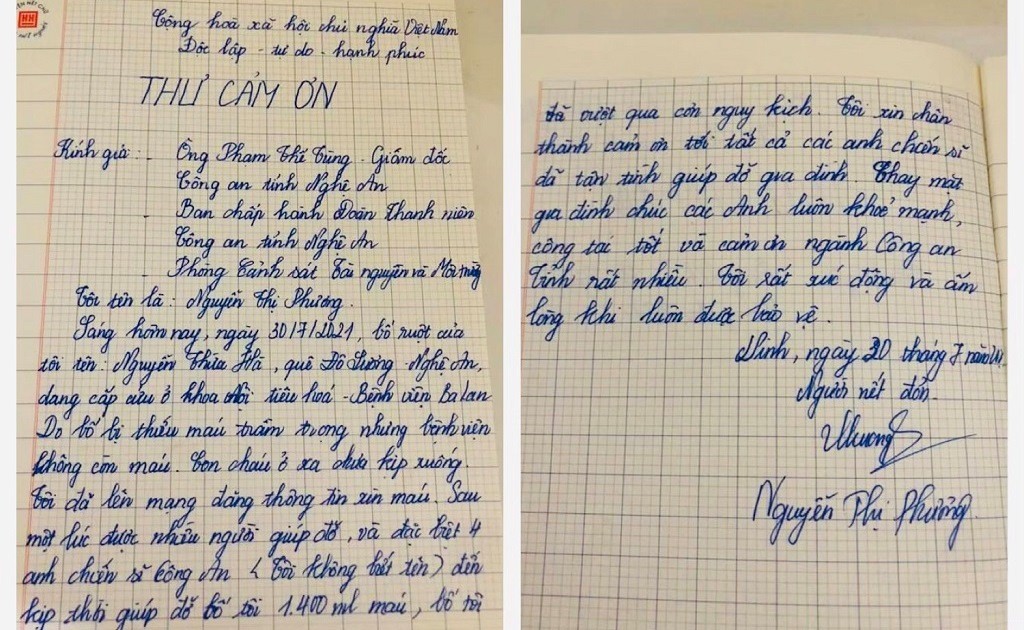 Cộng hoà xã hội chủ nghĩa Việt Nam
Độc lập - tự do - hạnh phúc
THƯ CẢM ƠN
Kính gửi: - Ông Phạm Thế Tùng - Giám đốc
Công an tỉnh Nghệ An
- Ban chấp hành Đoàn Thanh niên
Công an tỉnh Nghệ An
- Phòng Cảnh sát Tài nguyên và Môi trường
Tôi tên là: Nguyễn Thị Phương.
Sáng hôm nay, ngày 30/7/2021, bố ruột của
tôi tên: Nguyễn Thừa Hà, quê Đô Lương - Nghệ An,
đang cấp cứu ở khoa nội tiêu hoá - Bệnh viện Ba Lan
Do bố bị thiếu máu trầm trọng nhưng bệnh viện
không còn máu. Con cháu ở xa chưa kịp xuống.
Tôi đã lên mạng đăng thông tin xin máu. Sau
một lúc được nhiều người giúp đỡ, và đặc biệt 4
anh chiến sĩ Công An (Tôi không biết tên) đến
kịp thời giúp đỡ bố tôi 1.400 ml máu, bố tôi
đã vượt qua cơn nguy kịch. Tôi xin chân
thành cảm ơn tới tất cả các anh chiến sĩ
đã tận tình giúp đỡ gia đình. Thay mặt
gia đình chúc các Anh luôn khoẻ mạnh,
công tác tốt và cảm ơn ngành Công an
Tỉnh rất nhiều. Tôi rất xúc động và ấm
lòng khi luôn được bảo vệ.
Vinh, ngày 30 tháng 7 năm
Người viết đơn.
Phương
Nguyễn Thị Phương.